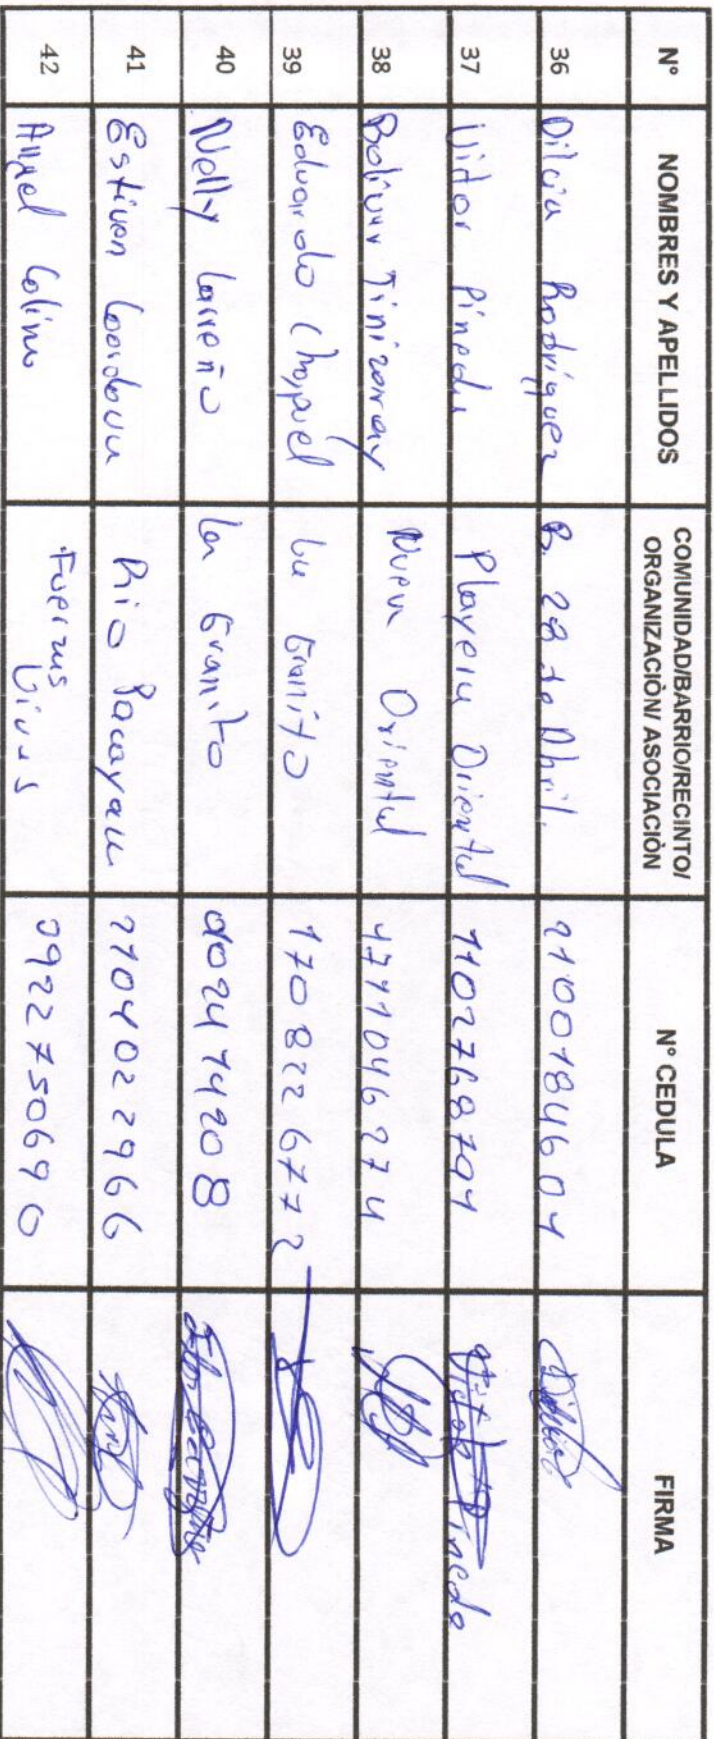 Nº NOMBRES Y APELLIDOS COMUNIDAD/BARRIO/RECINTO/ ORGANIZACIÒN/ ASOCIACIÓN Nº CEDULA FIRMA
36 Dilcia Rodríguez B. 28 de Abril. 2100184604
37 Victor Pineda Playeru Oriental 1102768704 Victor Pineda
38 Bolivar Tinizaray Nueva Oriental
39 Eduardo Chapuel La Granito 1708226772
40 Nelly Carreño La Granito
41 Estiven Coordova Rio Pacayacu 2104022966
42 Angel Colina Fuerzas Vivas 0922750690